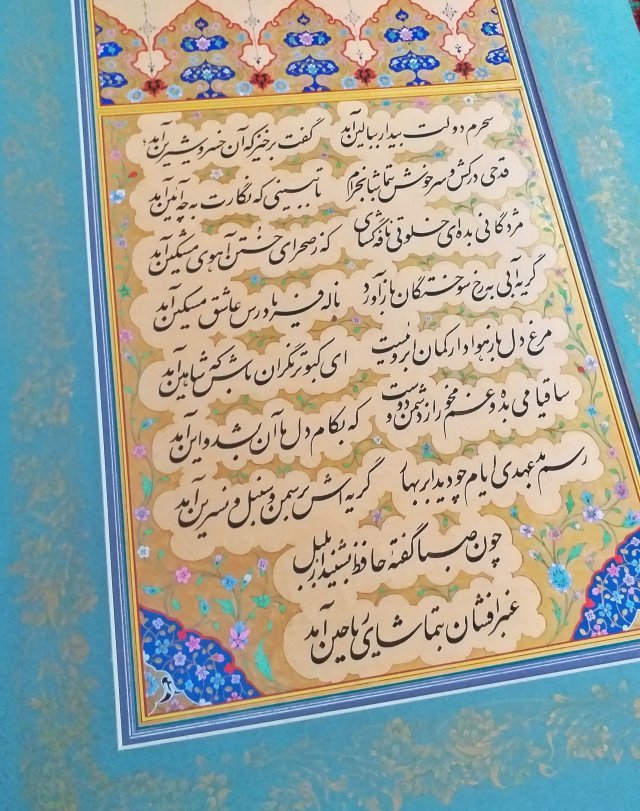 سحرم دولت بیدار ببالین آمد گفت برخیز که آن خسرو شیرین آمد
قدحی درکش و سرخوش بتماشا بخرام تا ببینی که نگارت به چه آیین آمد
مژدگانی بده ای خلوتی نافه گشای که ز صحرای ختن آهوی مشکین آمد
گریه آبی به رخ سوختگان باز آورد ناله فریاد رس عاشق مسکین آمد
مرغ دل باز هوادار کمان ابروئیست ای کبوتر نگران باش که شاهین آمد
ساقیا می بده و غم مخور از دشمن و دوست که بکام دل ما آن بشد و این آمد
رسم بدعهدی ایام چو دید ابر بهار گریه اش بر سمن و سنبل و نسرین آمد
چون صبا گفتهٔ حافظ بشنید از بلبل
عنبر افشان بتماشای ریاحین آمد